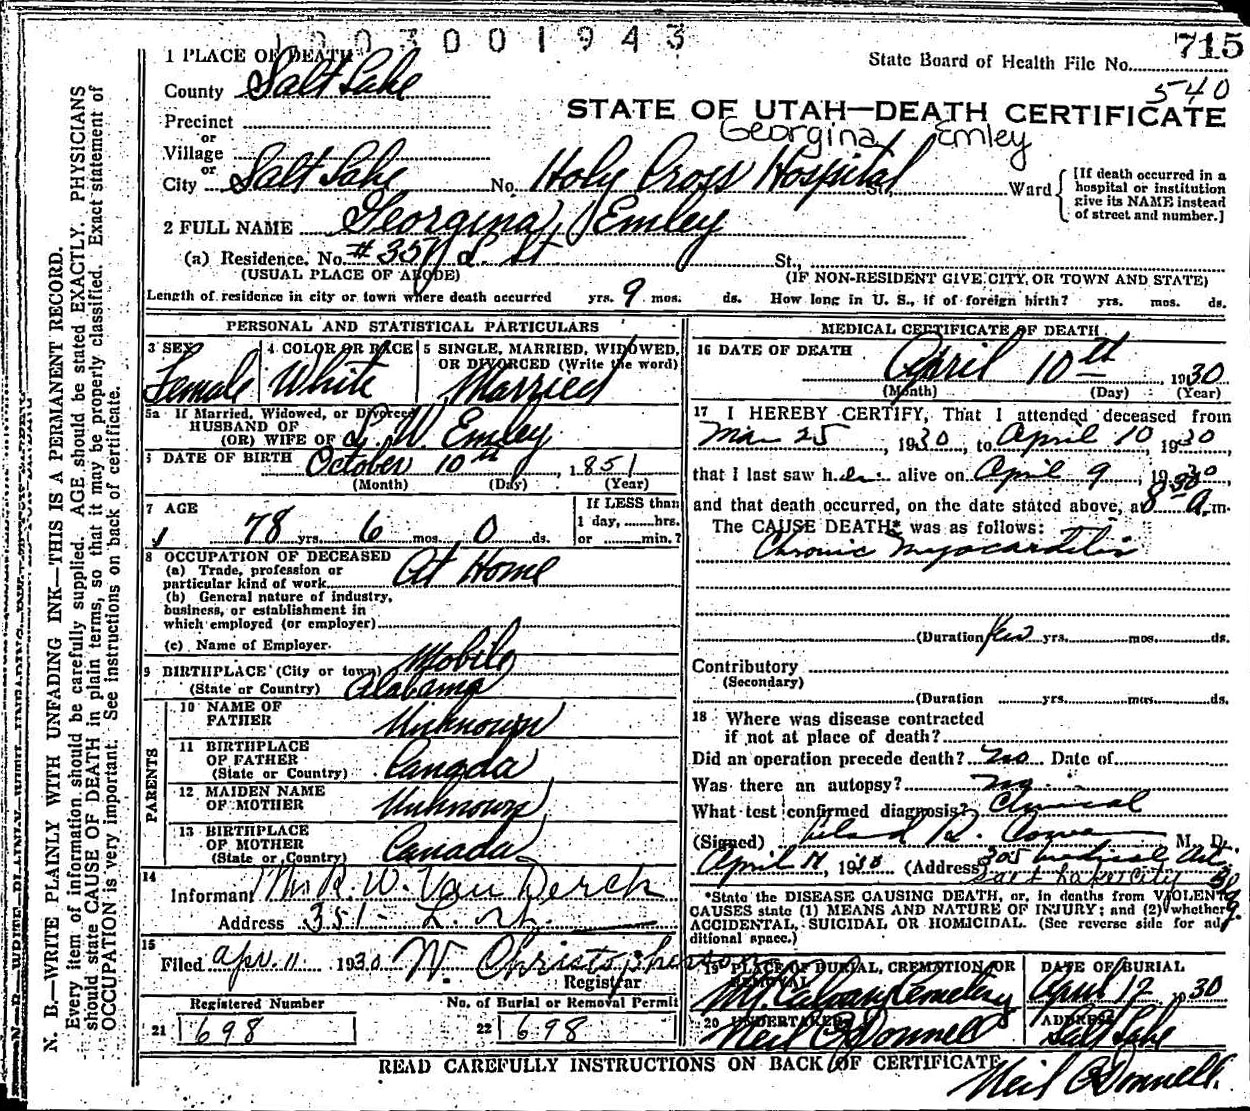 1 2 0 3 0 0 1 9 4 3
715
State Board of Health File No.
540
1 PLACE OF DEATH
County Salt Lake
STATE OF UTAH—DEATH CERTIFICATE
Georgina Emley
Precinct
or
Village
or
City Salt Lake No. Holy Cross Hospital St., Ward
[If death occurred in a hospital or institution give its NAME instead of street and number.]
2 FULL NAME Georgina Emley
(a) Residence. No. # 351 L. St St.,
(USUAL PLACE OF ABODE) (IF NON-RESIDENT GIVE CITY, OR TOWN AND STATE)
Length of residence in city or town where death occurred yrs. 9 mos. ds. How long in U. S., if of foreign birth? yrs. mos. ds.
PERSONAL AND STATISTICAL PARTICULARS
3 SEX Female
4 COLOR OR RACE White
5 SINGLE, MARRIED, WIDOWED, OR DIVORCED (Write the word) Married
5a If Married, Widowed, or Divorced
HUSBAND OF
(OR) WIFE OF L. W. Emley
6 DATE OF BIRTH October 10th, 1851
(Month) (Day) (Year)
7 AGE 78 yrs. 6 mos. 0 ds.
If LESS than
1 day, hrs.
or min.?
8 OCCUPATION OF DECEASED
(a) Trade, profession or
particular kind of work At Home
(b) General nature of industry,
business, or establishment in
which employed (or employer)
(c) Name of Employer
9 BIRTHPLACE (City or town) Mobile
(State or Country) Alabama
PARENTS
10 NAME OF FATHER Unknown
11 BIRTHPLACE OF FATHER (State or Country) Canada
12 MAIDEN NAME OF MOTHER Unknown
13 BIRTHPLACE OF MOTHER (State or Country) Canada
14
Informant Mrs R. W. Van Derck
Address 351- L. St.
15
Filed Apr. 11 1930 W. Christopherson
Registrar
Registered Number
21 698
No. of Burial or Removal Permit
22 698
MEDICAL CERTIFICATE OF DEATH
16 DATE OF DEATH April 10th, 1930
(Month) (Day) (Year)
17 I HEREBY CERTIFY, That I attended deceased from
Mar 25, 1930, to April 10, 1930,
that I last saw her alive on April 9, 1930
and that death occurred, on the date stated above, at 8 30 A. m.
The CAUSE DEATH* was as follows:
Chronic Myocarditis
(Duration few yrs. mos. ds.
Contributory
(Secondary)
(Duration yrs. mos. ds.
18 Where was disease contracted
if not at place of death?
Did an operation precede death? no Date of
Was there an autopsy? no
What test confirmed diagnosis? Clinical
(Signed) M. D.
April 11, 1930 (Address) 305 Medical Arts
Salt Lake City
*State the DISEASE CAUSING DEATH, or, in deaths from VIOLENT
CAUSES state (1) MEANS AND NATURE OF INJURY; and (2) whether
ACCIDENTAL, SUICIDAL OR HOMICIDAL. (See reverse side for ad-
ditional space.)
19 PLACE OF BURIAL, CREMATION, OR REMOVAL
Mt. Calvary Cemetery
DATE OF BURIAL
April 12, 1930
20 UNDERTAKER
Neil O'Donnell
ADDRESS
Salt Lake
READ CAREFULLY INSTRUCTIONS ON BACK OF CERTIFICATE
Neil O'Donnell
N. B.—WRITE PLAINLY WITH UNFADING INK—THIS IS A PERMANENT RECORD.
Every item of information should be carefully supplied. AGE should be stated EXACTLY. PHYSICIANS
should state CAUSE OF DEATH in plain terms, so that it may be properly classified. Exact statement of
OCCUPATION is very important. See instructions on back of certificate.